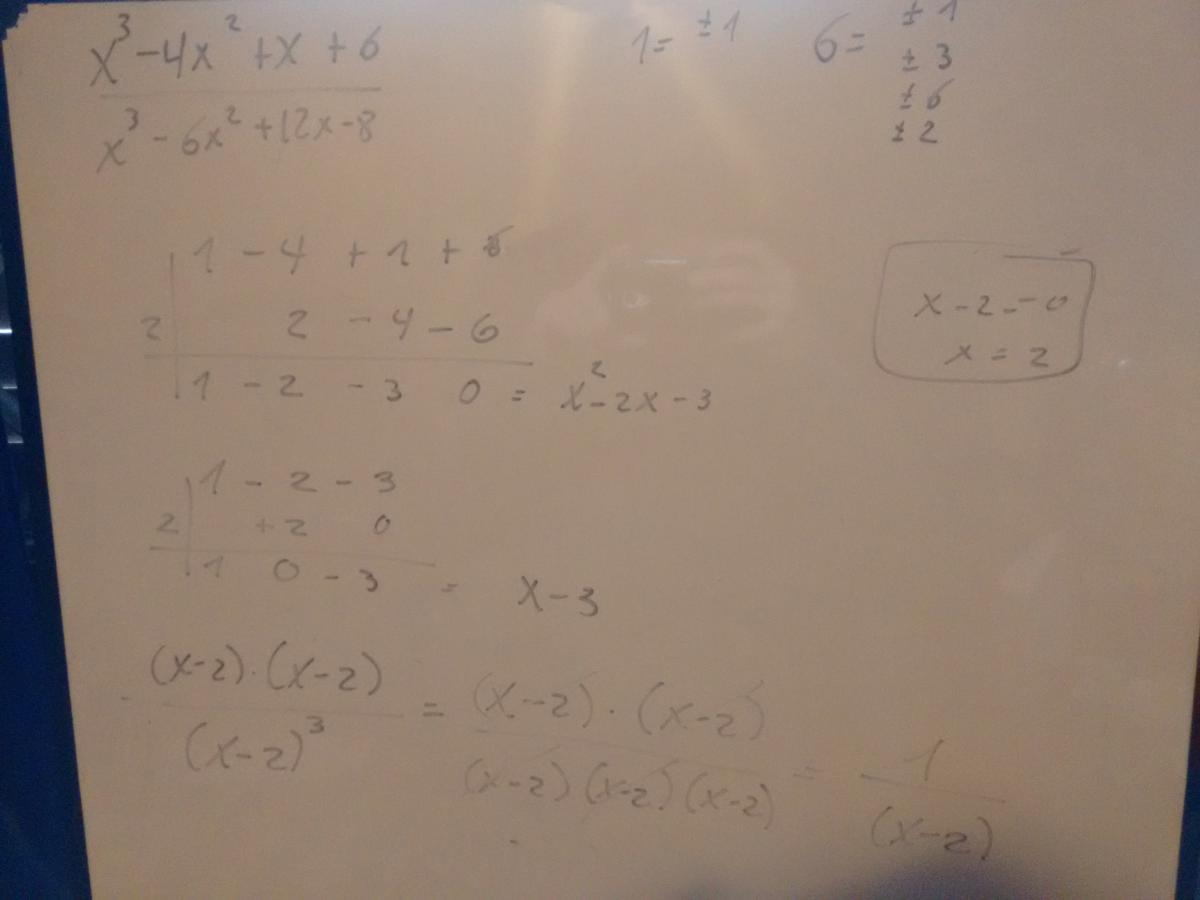 x³ - 4x² + x + 6      1 = ±1      6 = ±1
x³ - 6x² + 12x - 8      ±3
±6
±2
1 - 4 + 1 + 6
2      2 - 4 - 6
1 - 2 - 3 0 = x² - 2x - 3
x - 2 = 0
x = 2
1 - 2 - 3
2      + 2 0
1 0 - 3 = x - 3
(x-2)·(x-2) / (x-2)³ = (x-2)·(x-2) / (x-2)(x-2)(x-2) = 1 / (x-2)